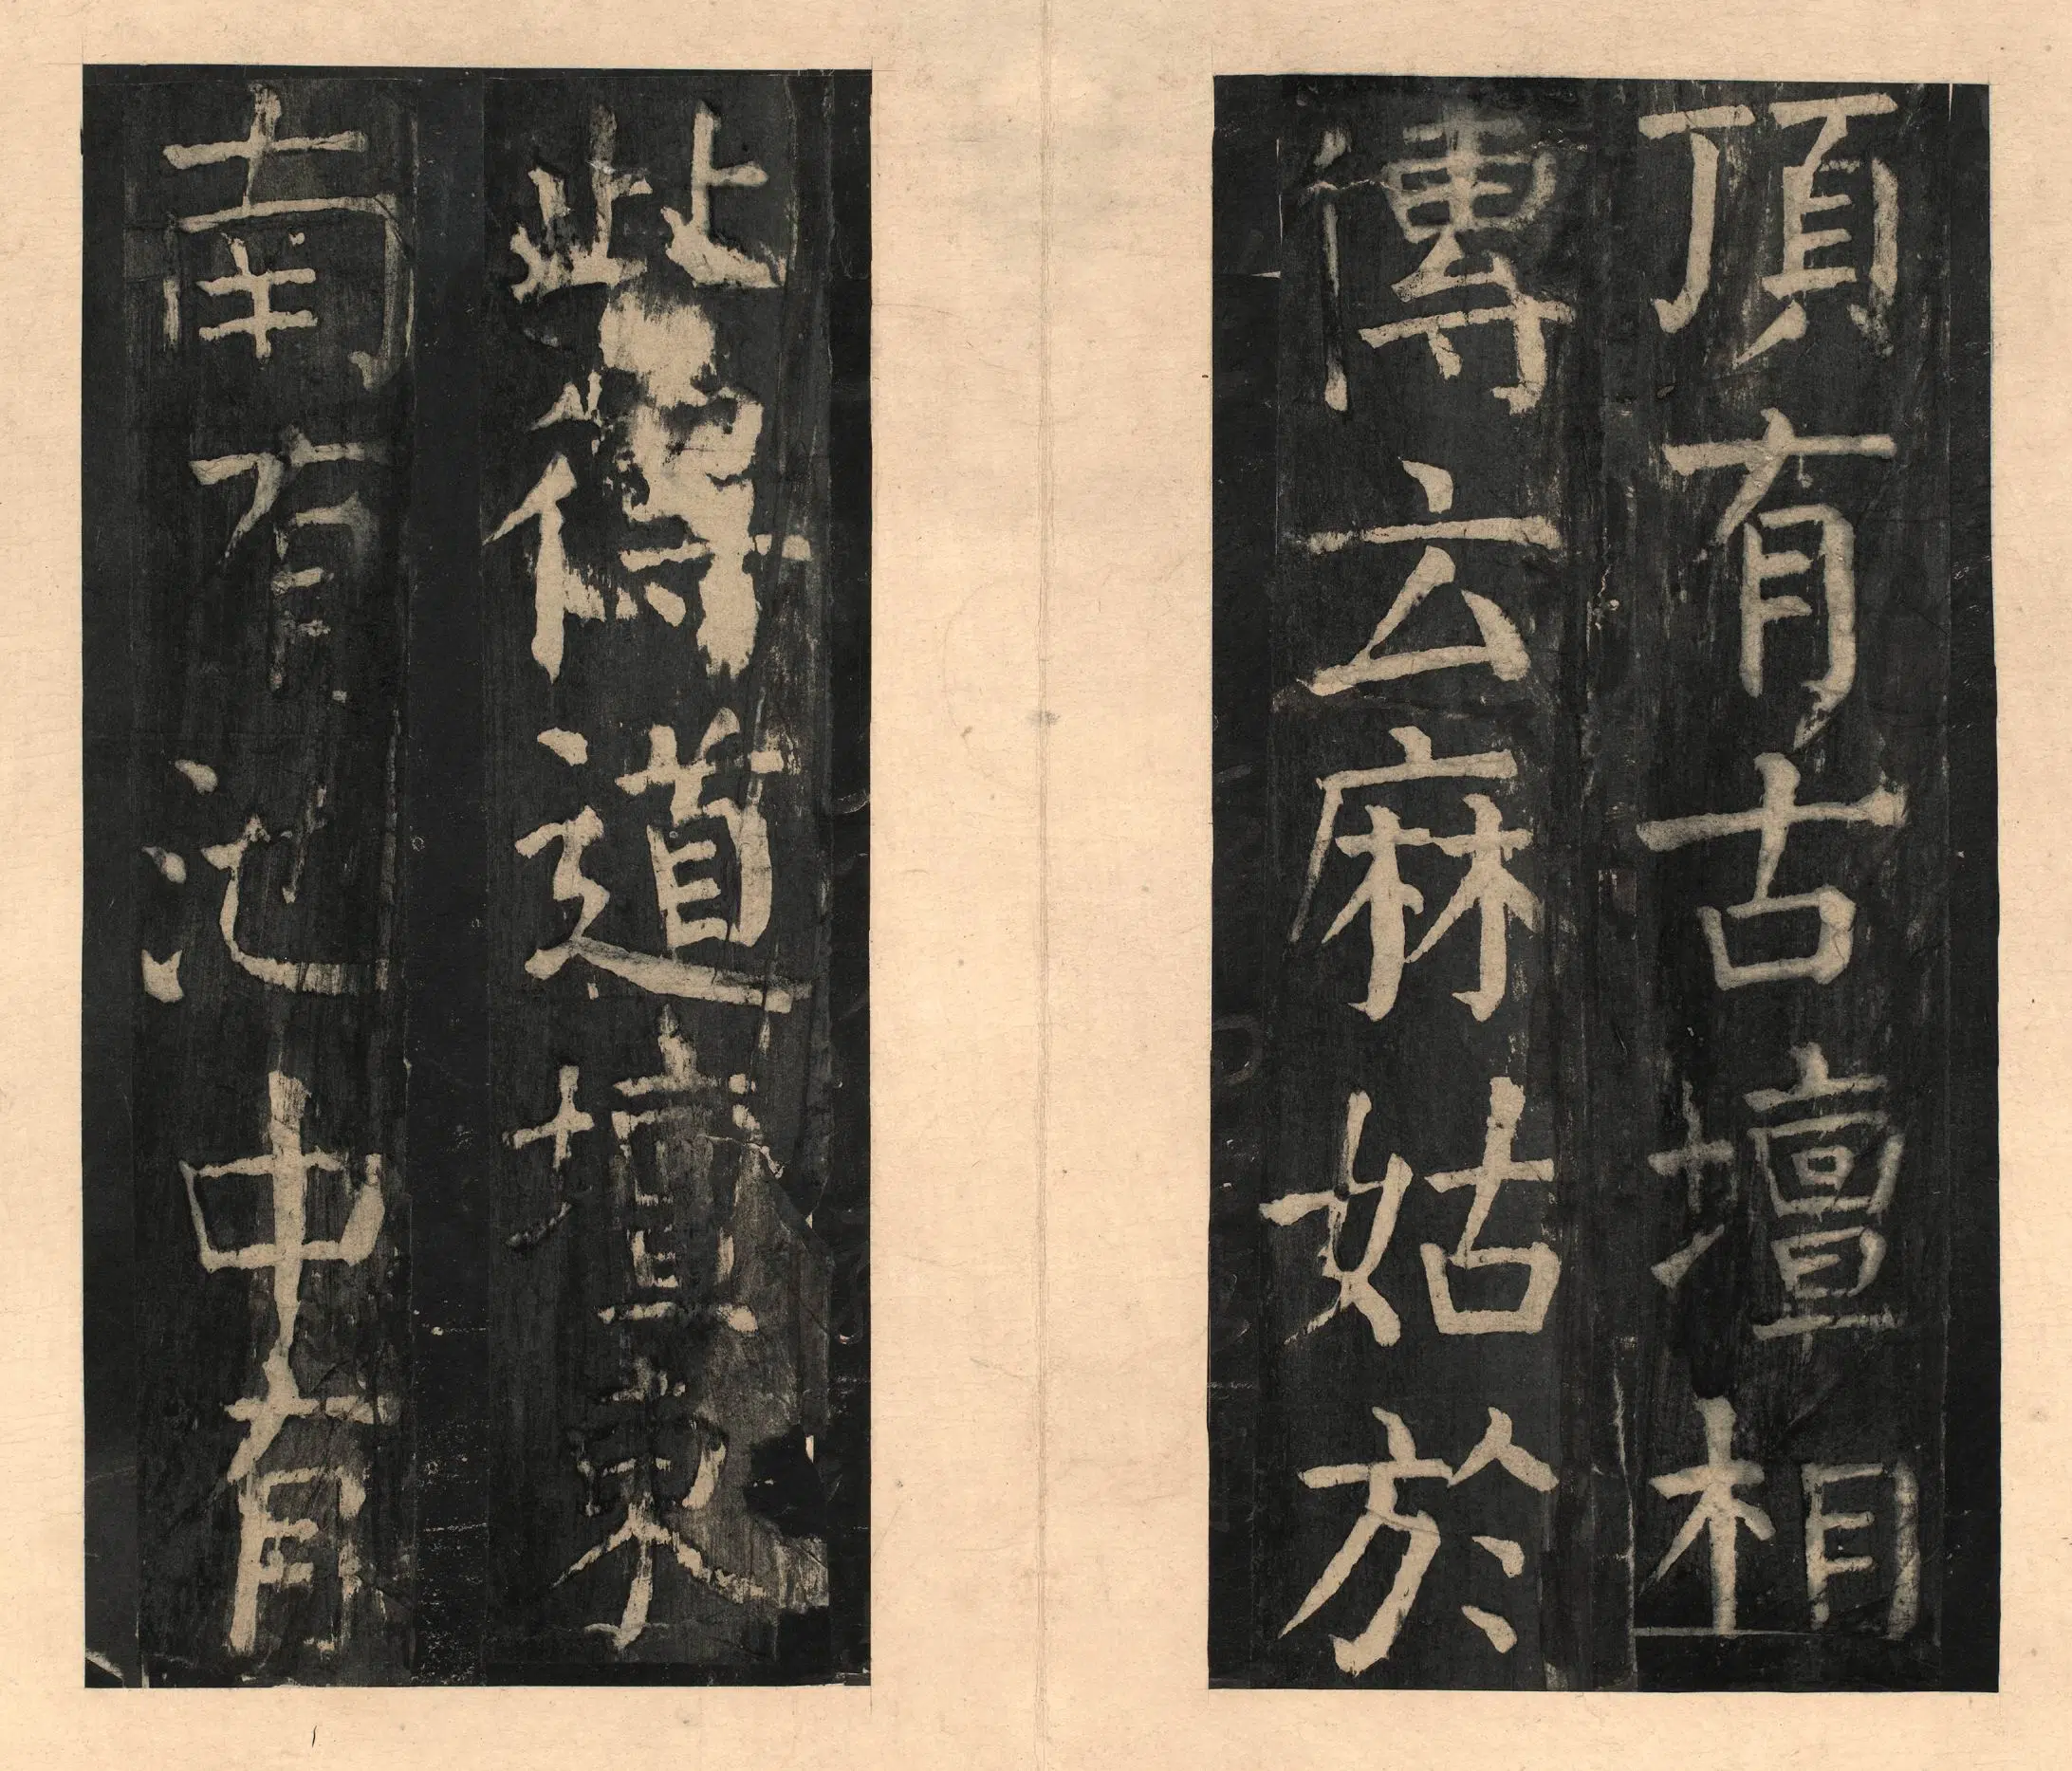 頂有古壇相
傳云麻姑於
此得道壇東
南有池中有